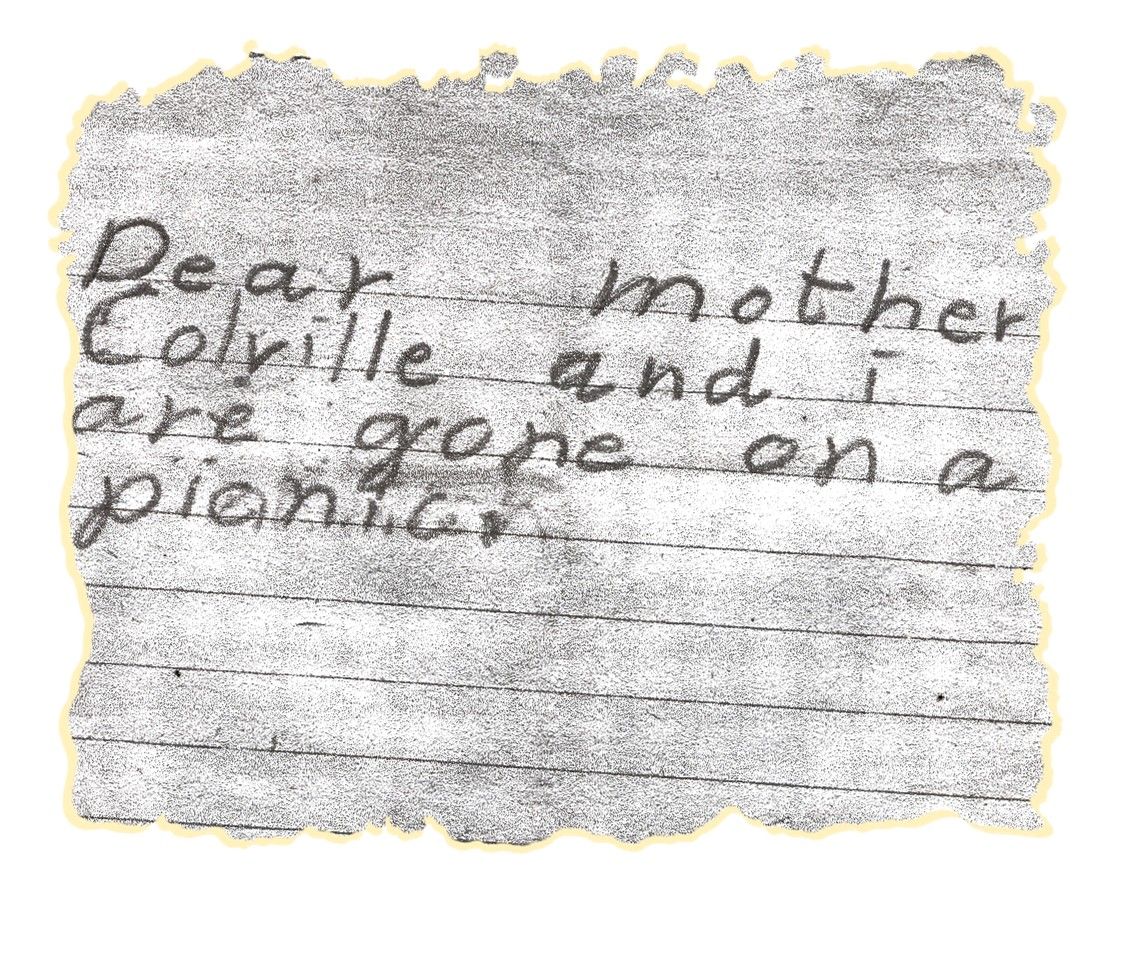 Dear mother
Colville and i
are gone on a
pianic.